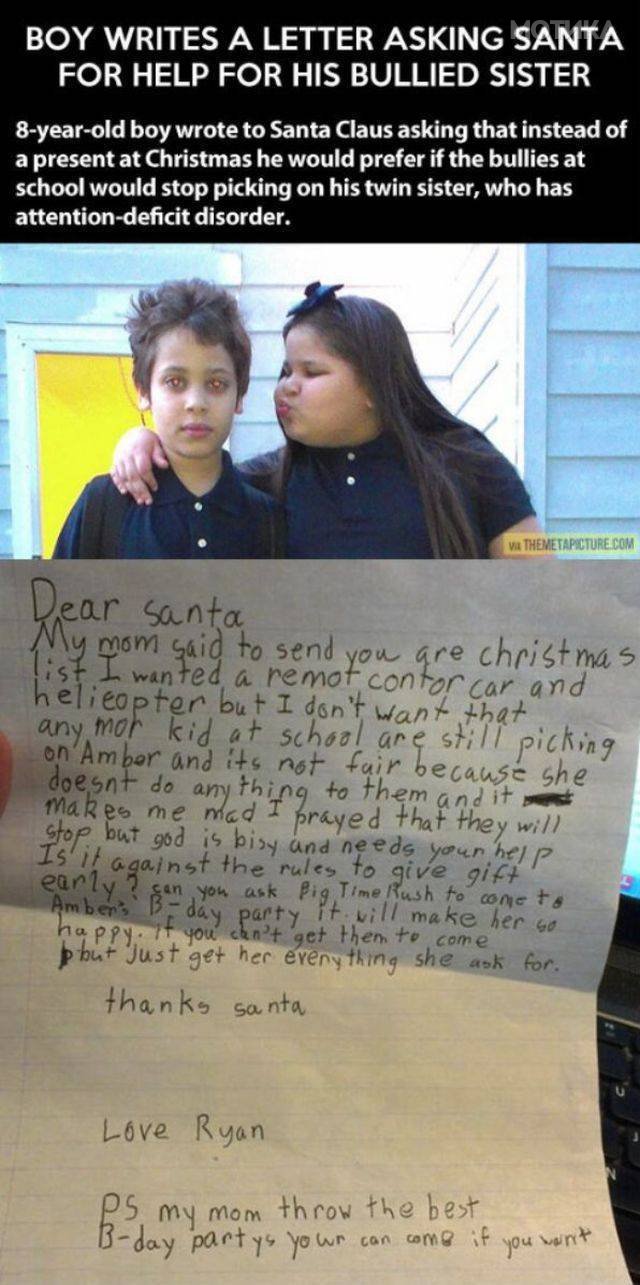 МОТИКА
BOY WRITES A LETTER ASKING SANTA
FOR HELP FOR HIS BULLIED SISTER
8-year-old boy wrote to Santa Claus asking that instead of
a present at Christmas he would prefer if the bullies at
school would stop picking on his twin sister, who has
attention-deficit disorder.
VIA THEMETAPICTURE.COM
Dear santa
My mom said to send you are christmas
list I wanted a remot contor car and
helicopter but I don't want that
any mor kid at school are still picking
on Amber and its not fair because she
doesnt do any thing to them and it
makes me mad I prayed that they will
stop but god is bisy and needs your help
Is it against the rules to give gift
early? can you ask Big Time Rush to come to
Amber's B-day party it will make her so
happy. If you can't get them to come
but Just get her everything she ask for.
thanks santa
Love Ryan
PS my mom throw the best
B-day partys your can come if you want